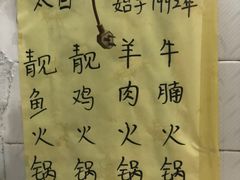 始于1992年
牛腩火锅
羊肉火锅
靓鸡火锅
靓鱼火锅